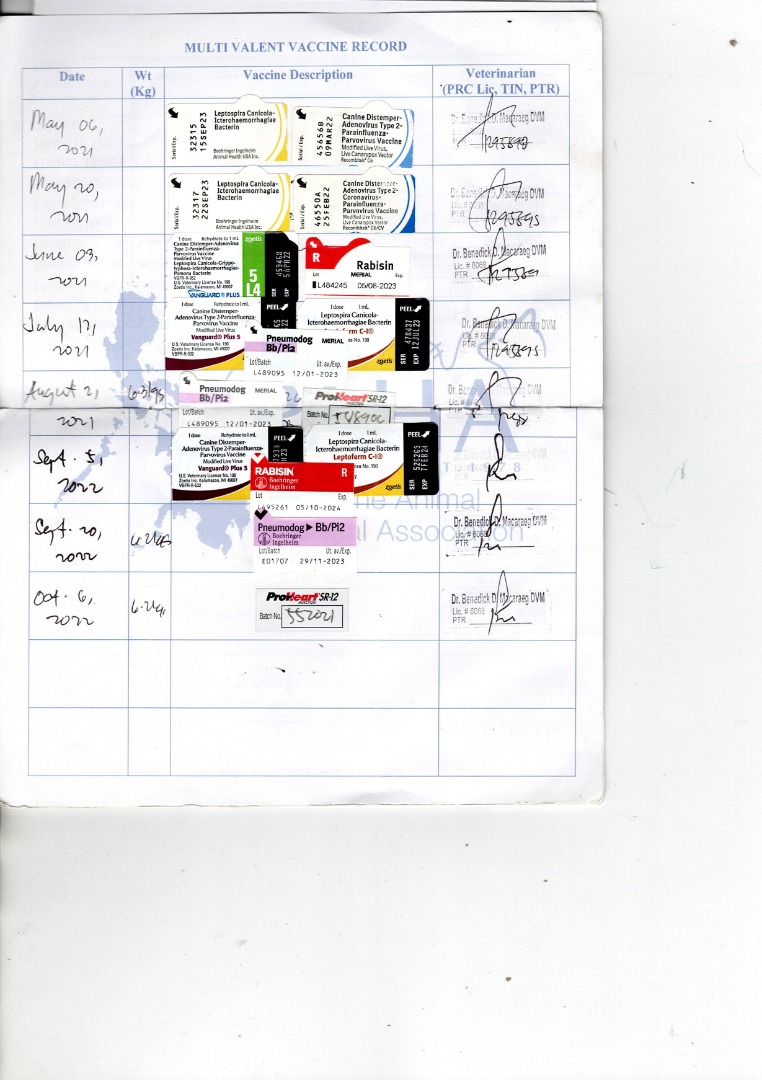 MULTI VALENT VACCINE RECORD
Date
Wt
(Kg)
Vaccine Description
Veterinarian
(PRC Lic, TIN, PTR)
May 06,
2021
32315
15SEP23
Serial/Exp.
Leptospira Canicola-
Icterohaemorrhagiae
Bacterin
Boehringer Ingelheim
Animal Health USA Inc.
45656B
09MAR22
Serial/Exp.
Canine Distemper-
Adenovirus Type 2-
Parainfluenza-
Parvovirus Vaccine
Modified Live Virus,
Live Canarypox Vector
Recombitek® C6
Dr. Benedick D. Macaraeg DVM
May 20,
2021
32317
22SEP23
Serial/Exp.
Leptospira Canicola-
Icterohaemorrhagiae
Bacterin
Boehringer Ingelheim
Animal Health USA Inc.
46550A
25FEB22
Serial/Exp.
Canine Distemper-
Adenovirus Type 2-
Coronavirus-
Parainfluenza-
Parvovirus Vaccine
Modified Live Virus,
Live Canarypox Vector
Recombitek® C6/CV
Macaraeg DVM
June 09,
2021
1 dose Rehydrate to 1 mL
Canine Distemper-Adenovirus
Type 2-Parainfluenza-
Parvovirus Vaccine
Modified Live Virus
Leptospira Canicola-Grippo-
typhosa-Icterohaemorrhagiae-
Pomona Bacterin
U.S. Veterinary License No. 190
Zoetis Inc. Kalamazoo, MI 49007
VANGUARD® PLUS
zoetis
5
L4
SER
EXP
5APR22
R
Rabisin
Lot
MERIAL
Exp.
L484245 05/08-2023
Dr. Benedick D. Macaraeg DVM
Lic. # 6068
PTR
July 12,
2021
1 dose Rehydrate to 1 mL
Canine Distemper-
Adenovirus Type 2-Parainfluenza-
Parvovirus Vaccine
Modified Live Virus
Vanguard® Plus 5
U.S. Veterinary License No. 190
Zoetis Inc. Kalamazoo, MI 49007
PEEL
Pneumodog
Bb/Pi2
MERIAL
Lot/Batch Ut. av/Exp.
L489095 12/01-2023
1 dose 1 mL
Leptospira Canicola-
Icterohaemorrhagiae Bacterin
C-I®
No. 190
zoetis
PEEL
SER 478437
EXP 12JUL23
Macaraeg DVM
August 2,
2021
Pneumodog
Bb/Pi2
MERIAL
Lot/Batch Ut. av/Exp.
L489095 12/01-2023
ProHeart SR-12
Batch No.
Sept. 5,
2022
1 dose Rehydrate to 1 mL
Canine Distemper-
Adenovirus Type 2-Parainfluenza-
Parvovirus Vaccine
Modified Live Virus
Vanguard® Plus 5
U.S. Veterinary License No. 190
Zoetis Inc. Kalamazoo, MI 49007
PEEL
RABISIN R
Boehringer
Ingelheim
Lot Exp.
L495261 05/10-2024
1 dose 1 mL
Leptospira Canicola-
Icterohaemorrhagiae Bacterin
Leptoferm C-I®
No. 190
zoetis
PEEL
SER 526265
EXP 7FEB24
Sept. 20,
2022
Pneumodog Bb/Pi2
Boehringer
Ingelheim
Lot/Batch Ut. av./Exp.
E01707 29/11-2023
Animal
Association
Dr. Benedick D. Macaraeg DVM
Lic. # 6068
PTR
Oct. 6,
2022
ProHeart SR-12
INJECTION
Batch No. 552021
Dr. Benedick D. Macaraeg DVM
Lic. # 6068
PTR